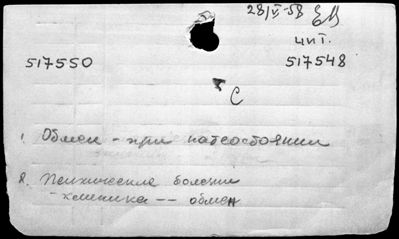 28/V-58
чит.
517550
517548
С
1. Обмен - при патсостоянии
2. Психические болезни
- клиника -- обмен